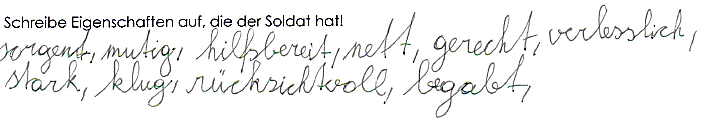 Schreibe Eigenschaften auf, die der Soldat hat!
sorgent, mutig, hilfsbereit, nett, gerecht, verlesslich,
stark, klug, rücksichtvoll, begabt,